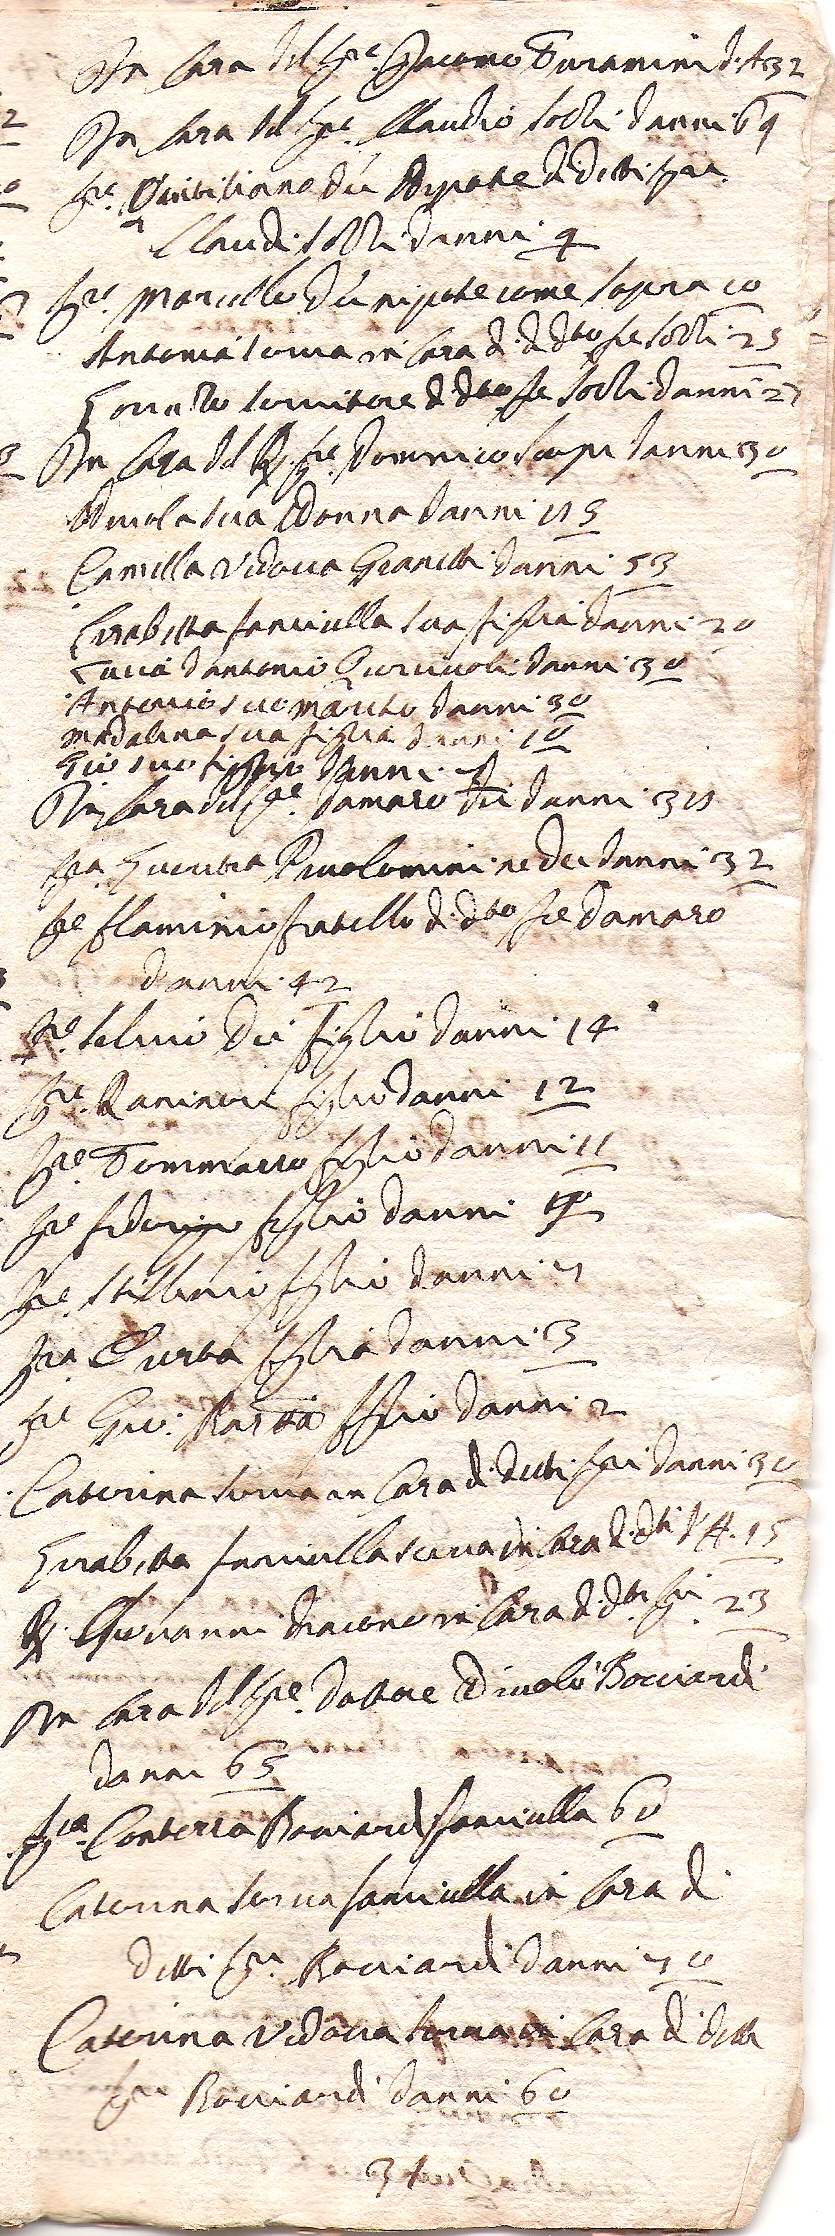 In Casa del Sre. Giacomo Turamini d.A 32
In Casa del Sre. Claudio Socii d'anni 69
Sre. Quintiliano Dei Nipote di detti Sre.
Claudi. Socii d'anni 9
Sre. Marcello Dei nipote come sopra 10
Antonia serva in Casa di dtto Sre Socii 25
servitore di dtto Sre Socii d'anni 27
In Casa del R. Sre. Domenico d'anni 30
sua Donna d'anni 55
Camilla Vedova d'anni 53
Lisabetta fanciulla sua figlia d'anni 20
Lucia d'Antonio d'anni 30
Antonio suo marito d'anni 30
Madalena sua figlia danni 10
Gio suo figlio danni
In Casa del Sre. Damaro Dei d'anni 35
Sra. Picolomini ne Dei d'anni 32
Sre Flaminio fratello di dtto Sre Damaro
d'anni 42
Sre. Selvio Dei figlio danni 14
Sre. figlio danni 12
Sre Tommasso figlio danni 11
Sre Federigo figlio danni
Sre. figlio danni 7
Sra figlia danni 3
Sre Gio: Batta figlio danni 2
Caterina serva in Casa di detti Sri danni 30
Lisabetta fanciulla serva in Casa di dti S A. 15
R. Giovanni Diacono in Casa di dtti Sri. 23
In Casa del Sre. Dottore Nicolò Bocciardi
danni 65
Sra. Contessa Bocciardi fanciulla 60
Caterina serva fanciulla in Casa di
detti Sri. Bocciardi danni 50
Caterina Vedova serva in Casa di detti
Sri Bocciardi danni 60
34